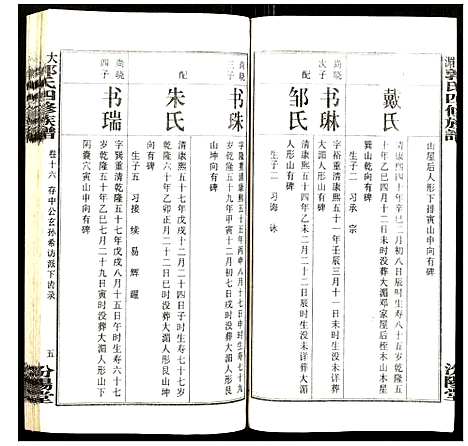 郭氏四修族譜
山屋后人形下排寅山申向有碑
戴氏
清康熙四十年辛巳二月初八日寅时生寿八十五岁乾隆五
十年乙巳四月十一日未时没葬大湄邓家屋后桎木山木星
巽山乾向有碑
生子二 习承 宗
尚晓次子
书琳
字裕重清康熙五十一年壬辰三月十一日未时生没未详葬
大湄人形山有碑
配
邹氏
清康熙五十四年乙未二月二十七日辰时生没未详葬
人形山有碑
生子二 习海 咏
尚晓三子
书珠
岁乾隆五十九年甲寅十二月初七日戌时没葬大湄人形艮
山坤向有碑
配
朱氏
清康熙五十七年戊戌二月二十四日子时生寿七十七岁
乾隆六十年乙卯正月二十二日巳时没葬大湄人形艮山坤
向有碑
生子五 习接 续 易 辉 耀
尚晓四子
书瑞
字巽重清乾隆五十七年戊戌八月十五日午时生寿六十二
岁乾隆五十年乙巳七月二十九日寅时没葬大湄人形山下
阴囊穴寅山申向有碑
汾陽堂
大郭氏四修族譜
卷十六 存中公玄孙希访派下齿录
五
汾陽堂